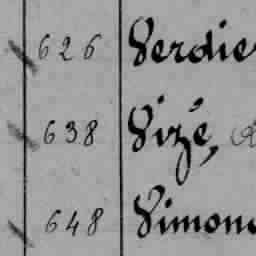 626 Verdie
638 Vizé,
648 Vimon